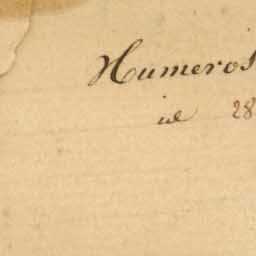 Numeros
al 28